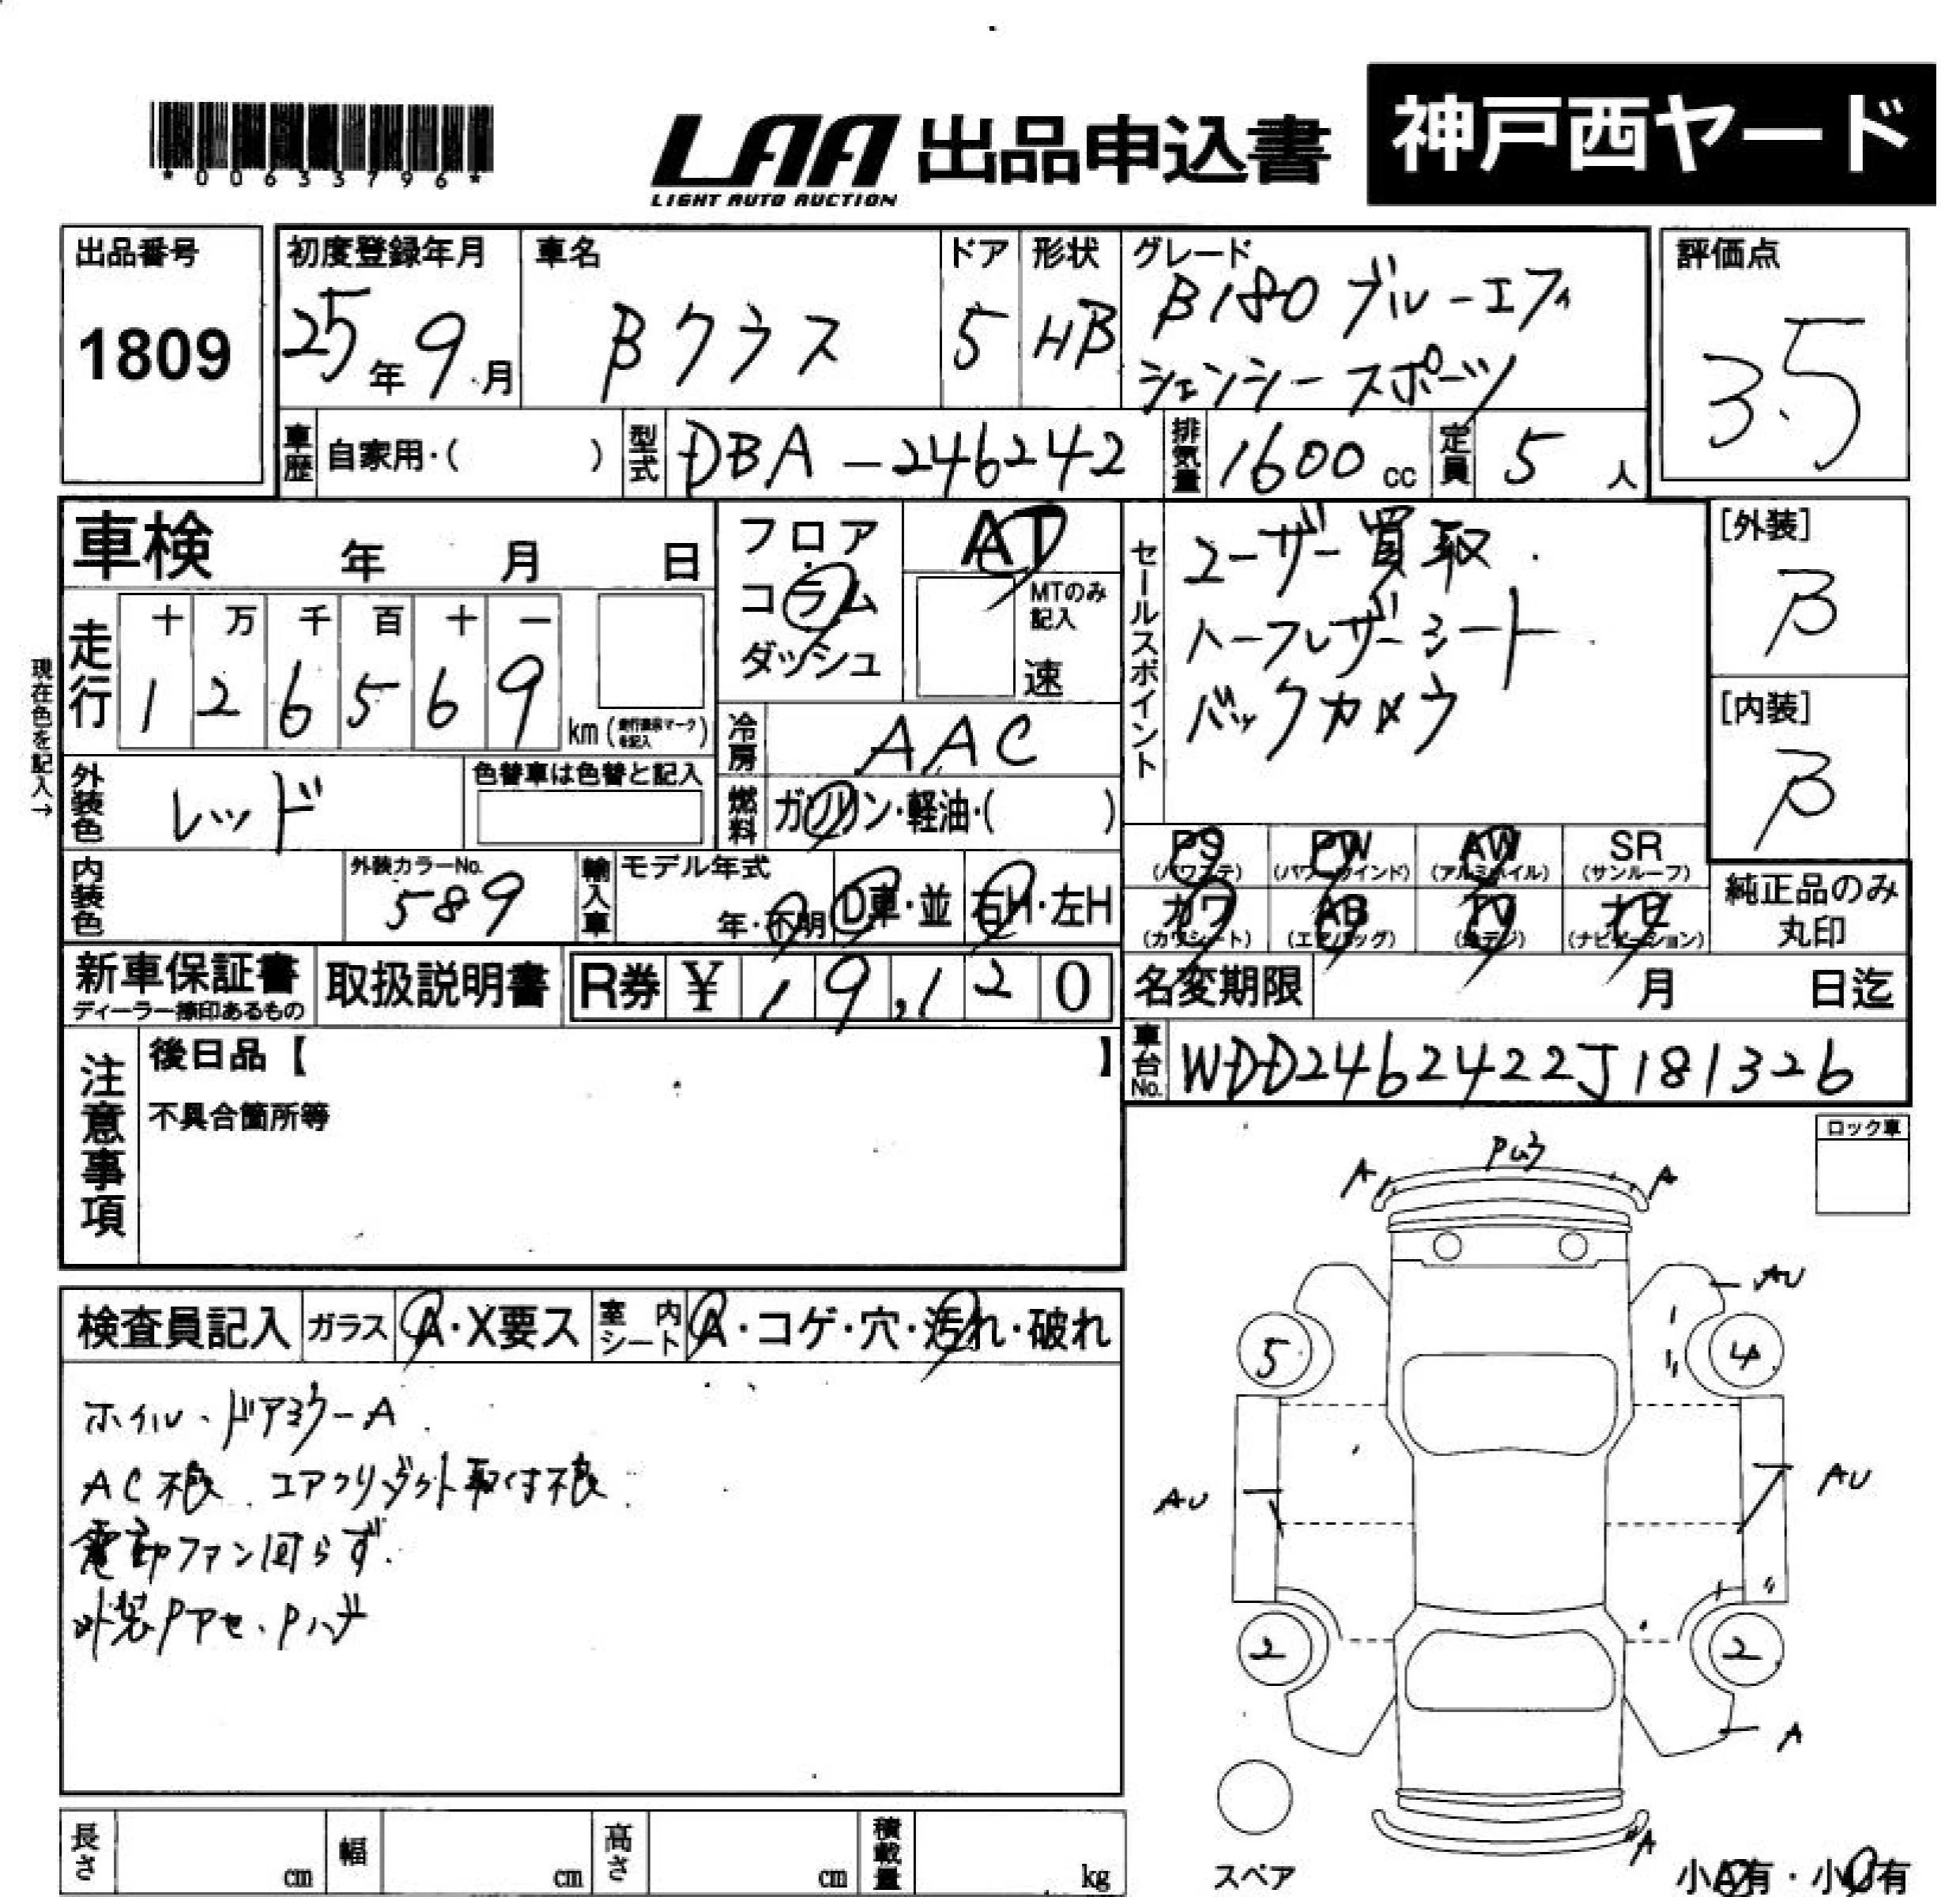 *00633796*
LAA 出品申込書
LIGHT AUTO AUCTION
神戸西ヤード
出品番号
1809
初度登録年月
25年9月
車名
Bクラス
ドア
5
形状
HB
グレード
B180 ブルーエフィ
シェンシースポーツ
評価点
3.5
車歴 自家用・( )
型式 DBA-246242
排気量 1600cc
定員 5人
車検 年 月 日
現在色を記入→
走行
十 万 千 百 十 一
1 2 6 5 6 9
km(走行表示マークを記入)
フロア
コラム
ダッシュ
AT
MTのみ記入
速
冷房 AAC
燃料 ガソリン・軽油・( )
外装色 レッド
色替車は色替と記入
内装色
外装カラーNo.
589
輸入車
モデル年式
年・不明
D車・並
右H・左H
セールスポイント
ユーザー買取
ハーフレザーシート
バックカメラ
[外装]
B
[内装]
B
PS PW AW SR
(パワステ) (パワーウインド) (アルミホイル) (サンルーフ)
カワ AB TV ナビ
(カワシート) (エアバッグ) (地デジ) (ナビゲーション)
純正品のみ
丸印
新車保証書
ディーラー捺印あるもの
取扱説明書
R券 ¥19,120
名変期限 月 日迄
車台No. WDD2462422J181326
注意事項
後日品【 】
不具合箇所等
ロック車
検査員記入
ガラス A・X要ス
室内シート A・コゲ・穴・汚れ・破れ
ホイル、ドアミラーA
AC不良、エアクリダクト取付不良
電動ファン回らず
外装Pアセ、Pハゲ
A A
AU
5 4
AU AU
2 2
A
A
スペア
小A有・小U有
長さ cm
幅 cm
高さ cm
積載量 kg